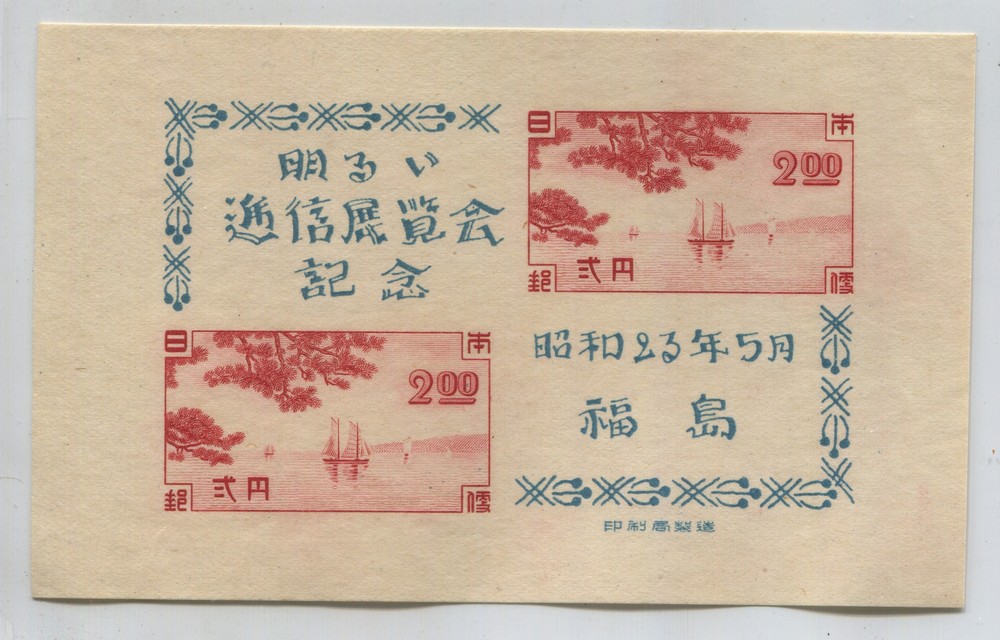 明るい
逓信展覧会
記念
日本
2.00
弐円
郵便
昭和23年5月
福島
日本
2.00
弐円
郵便
印刷局製造